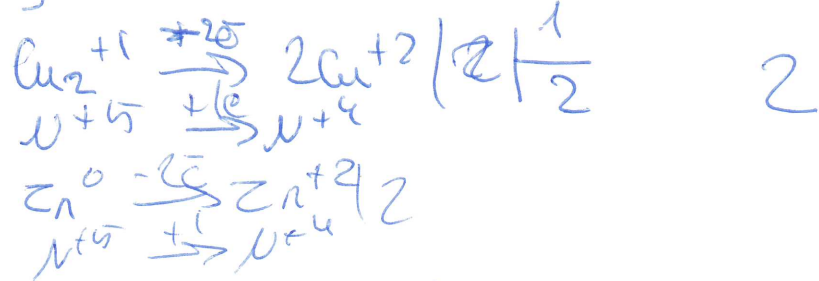 Cu₂⁺¹ +2ē→ 2Cu⁺² | 2 | 1/2 2
N⁺⁵ +1ē→ N⁺⁴
Zn⁰ -2ē→ Zn⁺² | 2
N⁺⁵ +1→ N⁺⁴